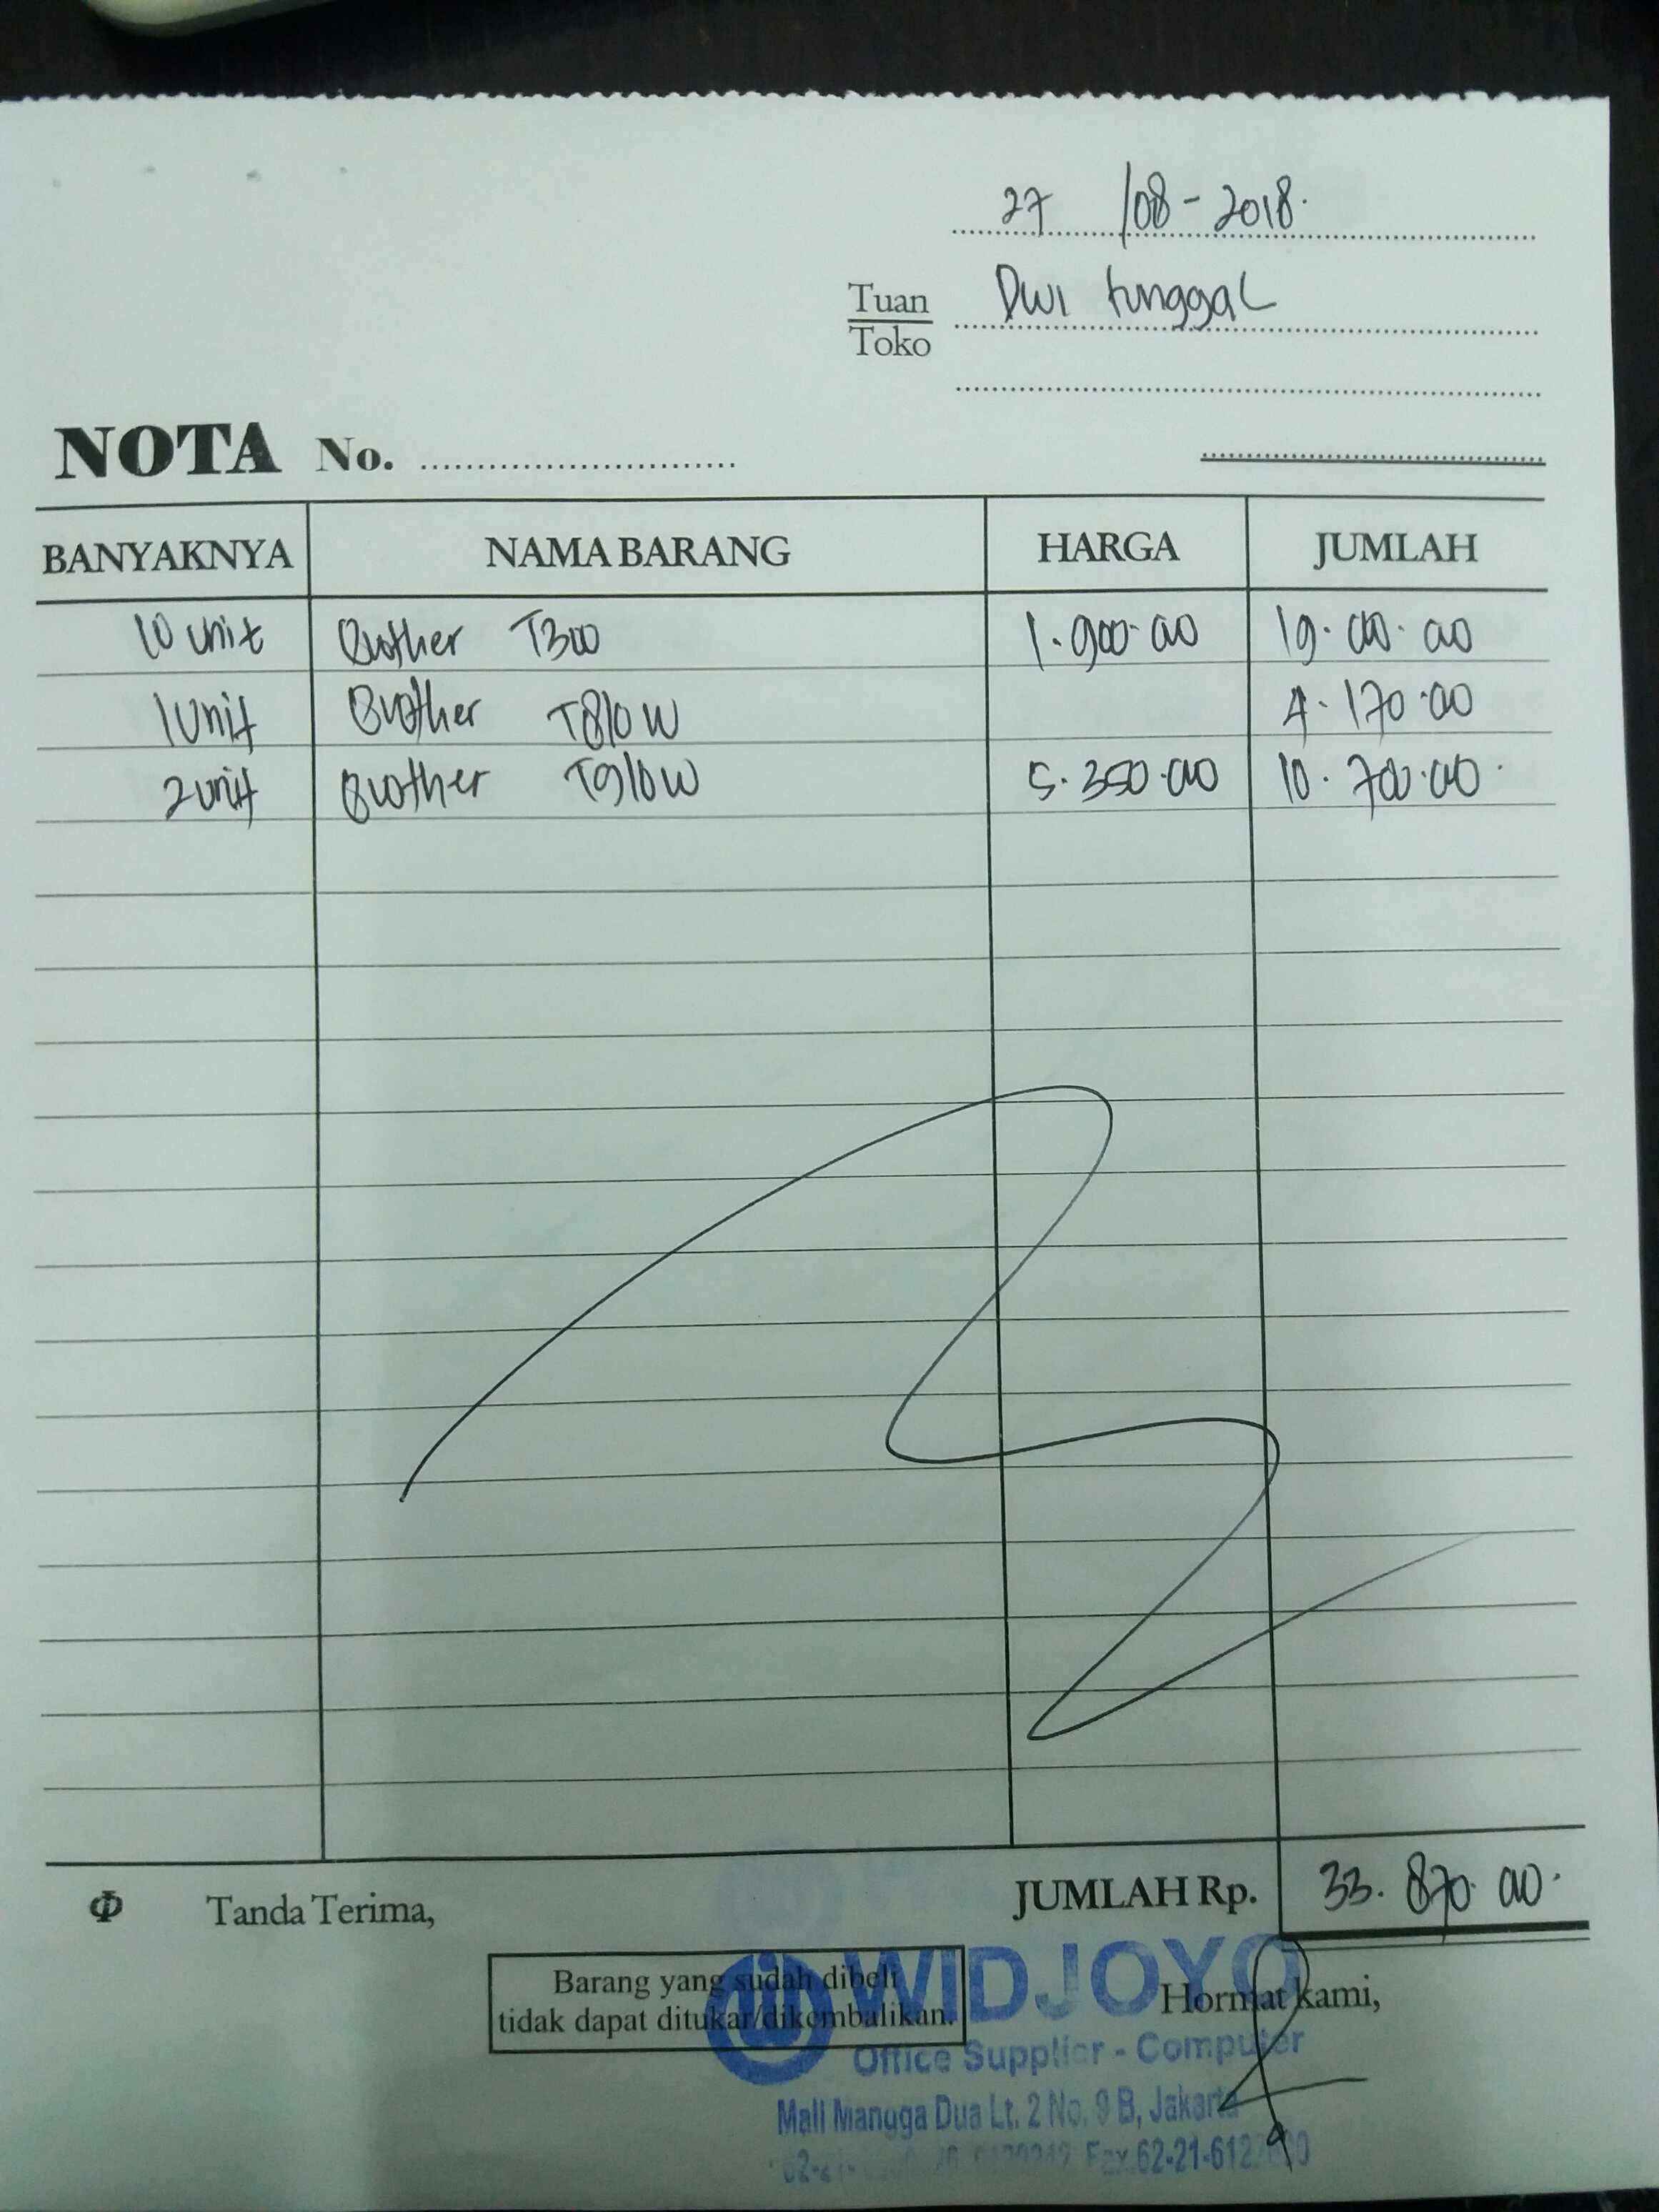 27 /08-2018.
Tuan
Toko
Dwi tunggal
NOTA No.
BANYAKNYA NAMA BARANG HARGA JUMLAH
10 unit Brother T300 1.900.00 19.000.00
1 Unit Brother T810 W 4.170.00
2 unit Brother T910W 5.350.00 10.700.00.
JUMLAH Rp. 33.870.00.
Φ Tanda Terima,
Barang yang sudah dibeli
tidak dapat ditukar/dikembalikan.
Hormat kami,
WIDJOYO
Office Supplier - Computer
Mall Mangga Dua Lt. 2 No. 9 B, Jakarta
Fax.62-21-612